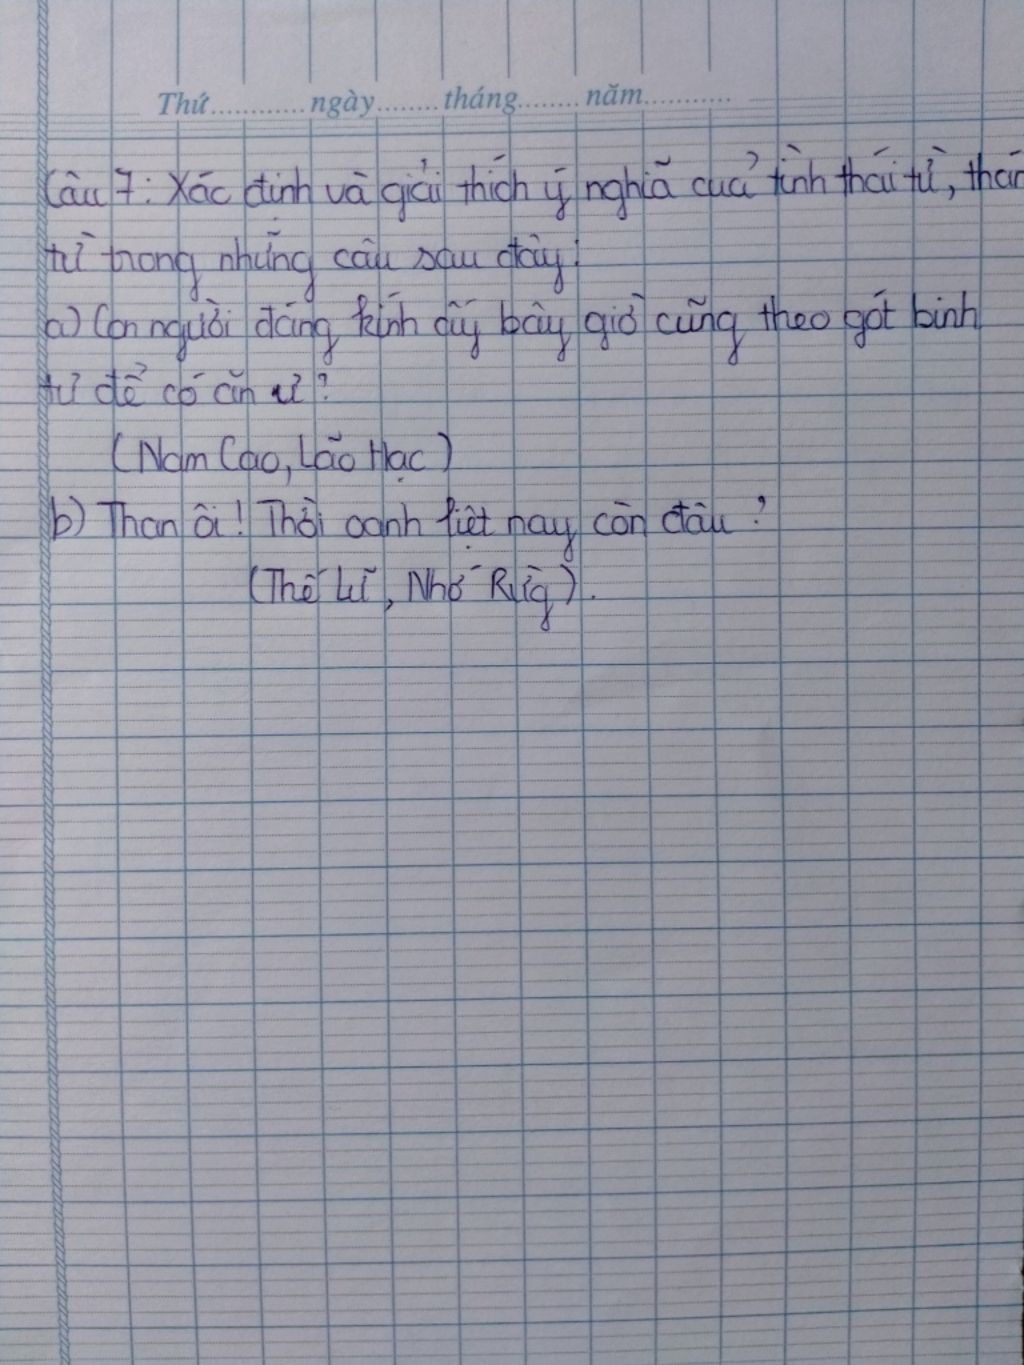 Thứ............ngày........tháng........năm...........
Câu 7: Xác định và giải thích ý nghĩa của tình thái từ, thán
từ trong những câu sau đây:
a) Con người đáng kính ấy bây giờ cũng theo gót binh
tư để có ăn ư?
(Nam Cao, Lão Hạc)
b) Than ôi! Thời oanh liệt nay còn đâu?
(Thế Lữ, Nhớ Rừng).